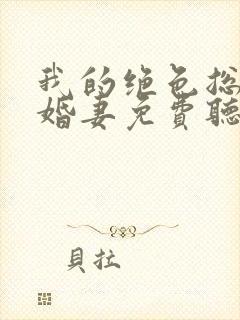 我的绝色总
婚妻免費聽
貝拉